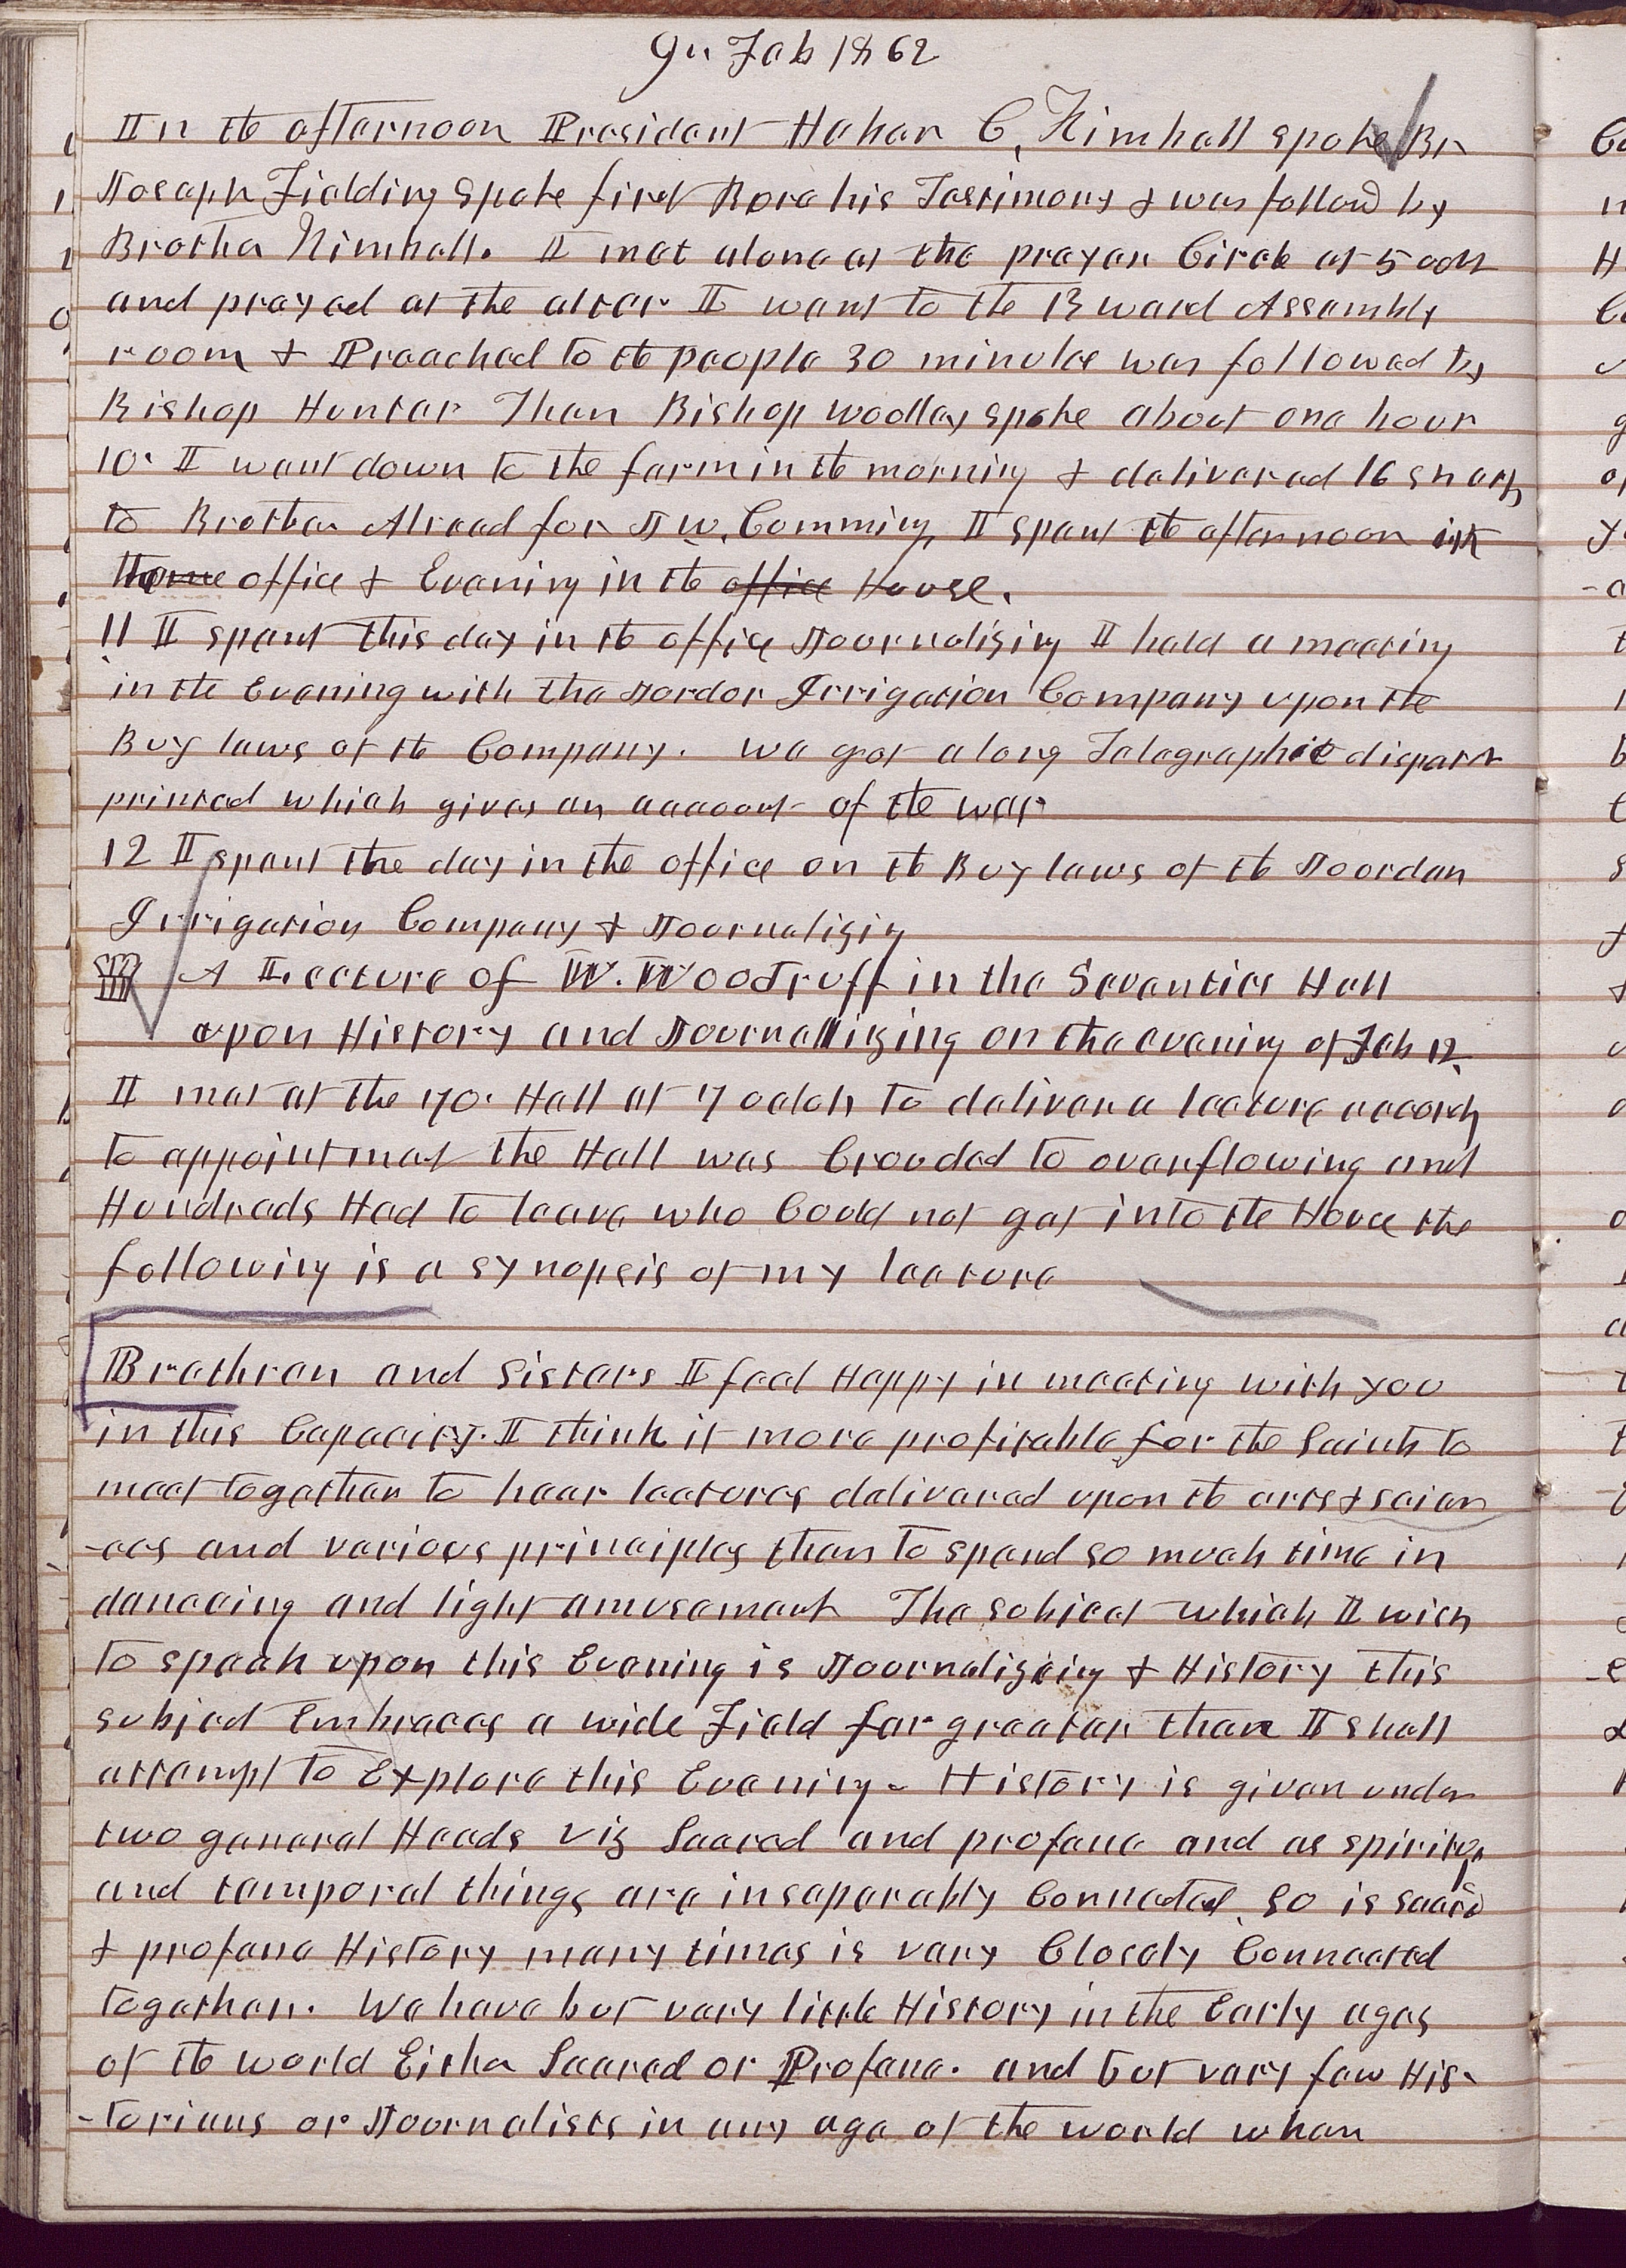 9th Feb 1862
In the afternoon President Heber C, Kimball spoke Br
Joseph Fielding spoke first Bore his Testimony & was followd by
Brother Kimball. I met alone at the prayer Circle at 5 oclk
and prayed at the altar I went to the 13 ward Assembly
room & Preached to the people 30 minutes was followed by
Bishop Hunter Then Bishop Woolley spoke about one hour
10. I went down to the farm in the morning & delivered 16 sheep
to Brother Alread for J W. Cumming, I spent the afternoon in the
Home office & Evening in the office House.
11 I spent this day in the office Journalizing I held a meeting
in the Evening with the Jordon Irrigation Company upon the
Buy laws of the Company. we got a long Telegraphic dispatch
printed which gives an account of the war
12 I spent the day in the office on the Buy laws of the Jourdan
Irrigation Company & Journalizing
A Lecture of W. Woodruff in the Seventies Hall
upon History and Journallizing on the evening of Feb 12.
I met at the 70. Hall at 7 oclok to deliver a lecture accordg
to appointmet the Hall was Crouded to overflowing and
Hundreds Had to leave who Could not get into the House the
following is a synopsis of my lecture
Brethren and Sisters I feel Happy in meeting with you
in this Capacity. I think it more profitable for the Saints to
meet together to hear lectures delivered upon the arts & scien
-ces and various principles than to spend so much time in
danceing and light amusement The subject which I wish
to speak upon this Evening is Journalizeing & History this
subject Embraces a wide Field far greater than I shall
attempt to Explore this Evening - History is given under
two general Heads viz Sacred and profane and as spiritual
and temporal things are inseparably Connected, so is sacred
& profane History many times is very Closely Connected
together. We have but very little History in the Early ages
of the world Either Sacred or Profane. and but very few His-
-torians or Journalists in any age of the world when